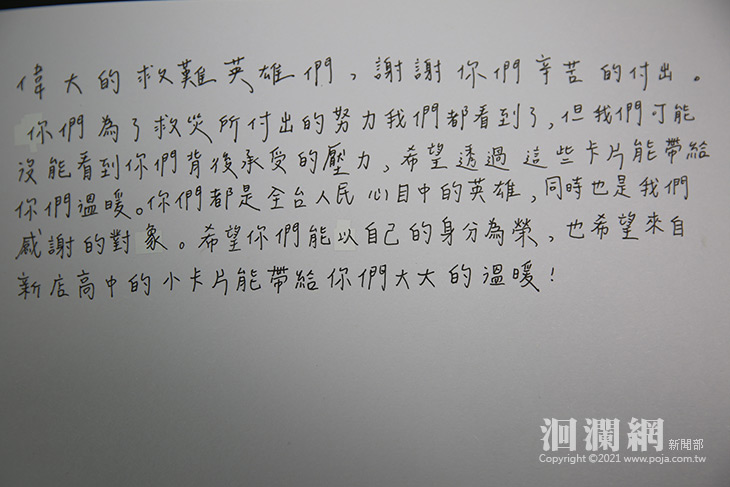 偉大的救難英雄們，謝謝你們辛苦的付出。
你們為了救災所付出的努力我們都看到了，但我們可能
沒能看到你們背後承受的壓力，希望透過這些卡片能帶給
你們溫暖。你們都是全台人民心目中的英雄，同時也是我們
感謝的對象。希望你們能以自己的身分為榮，也希望來自
新店高中的小卡片能帶給你們大大的溫暖！
洄瀾網新聞部
Copyright ©2021 www.poja.com.tw